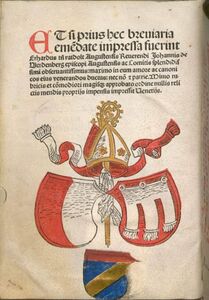 Et si prius hec breuiaria
emēdate impressa fuerint
Erhardus tñ ratdolt Augustensis Reuerendi Johannis de
Werdenberg episcopi Augustensis ac Comitis splendidis
simi obseruantissimus: maximo in eum amore ac canoni
cos eius venerandos ductus: nec nō z patrie. Miro ru
bricis et cōmodiori magisqz approbato ordine nullis reli
ctis mendis proprijs impensis impressit Venetijs.